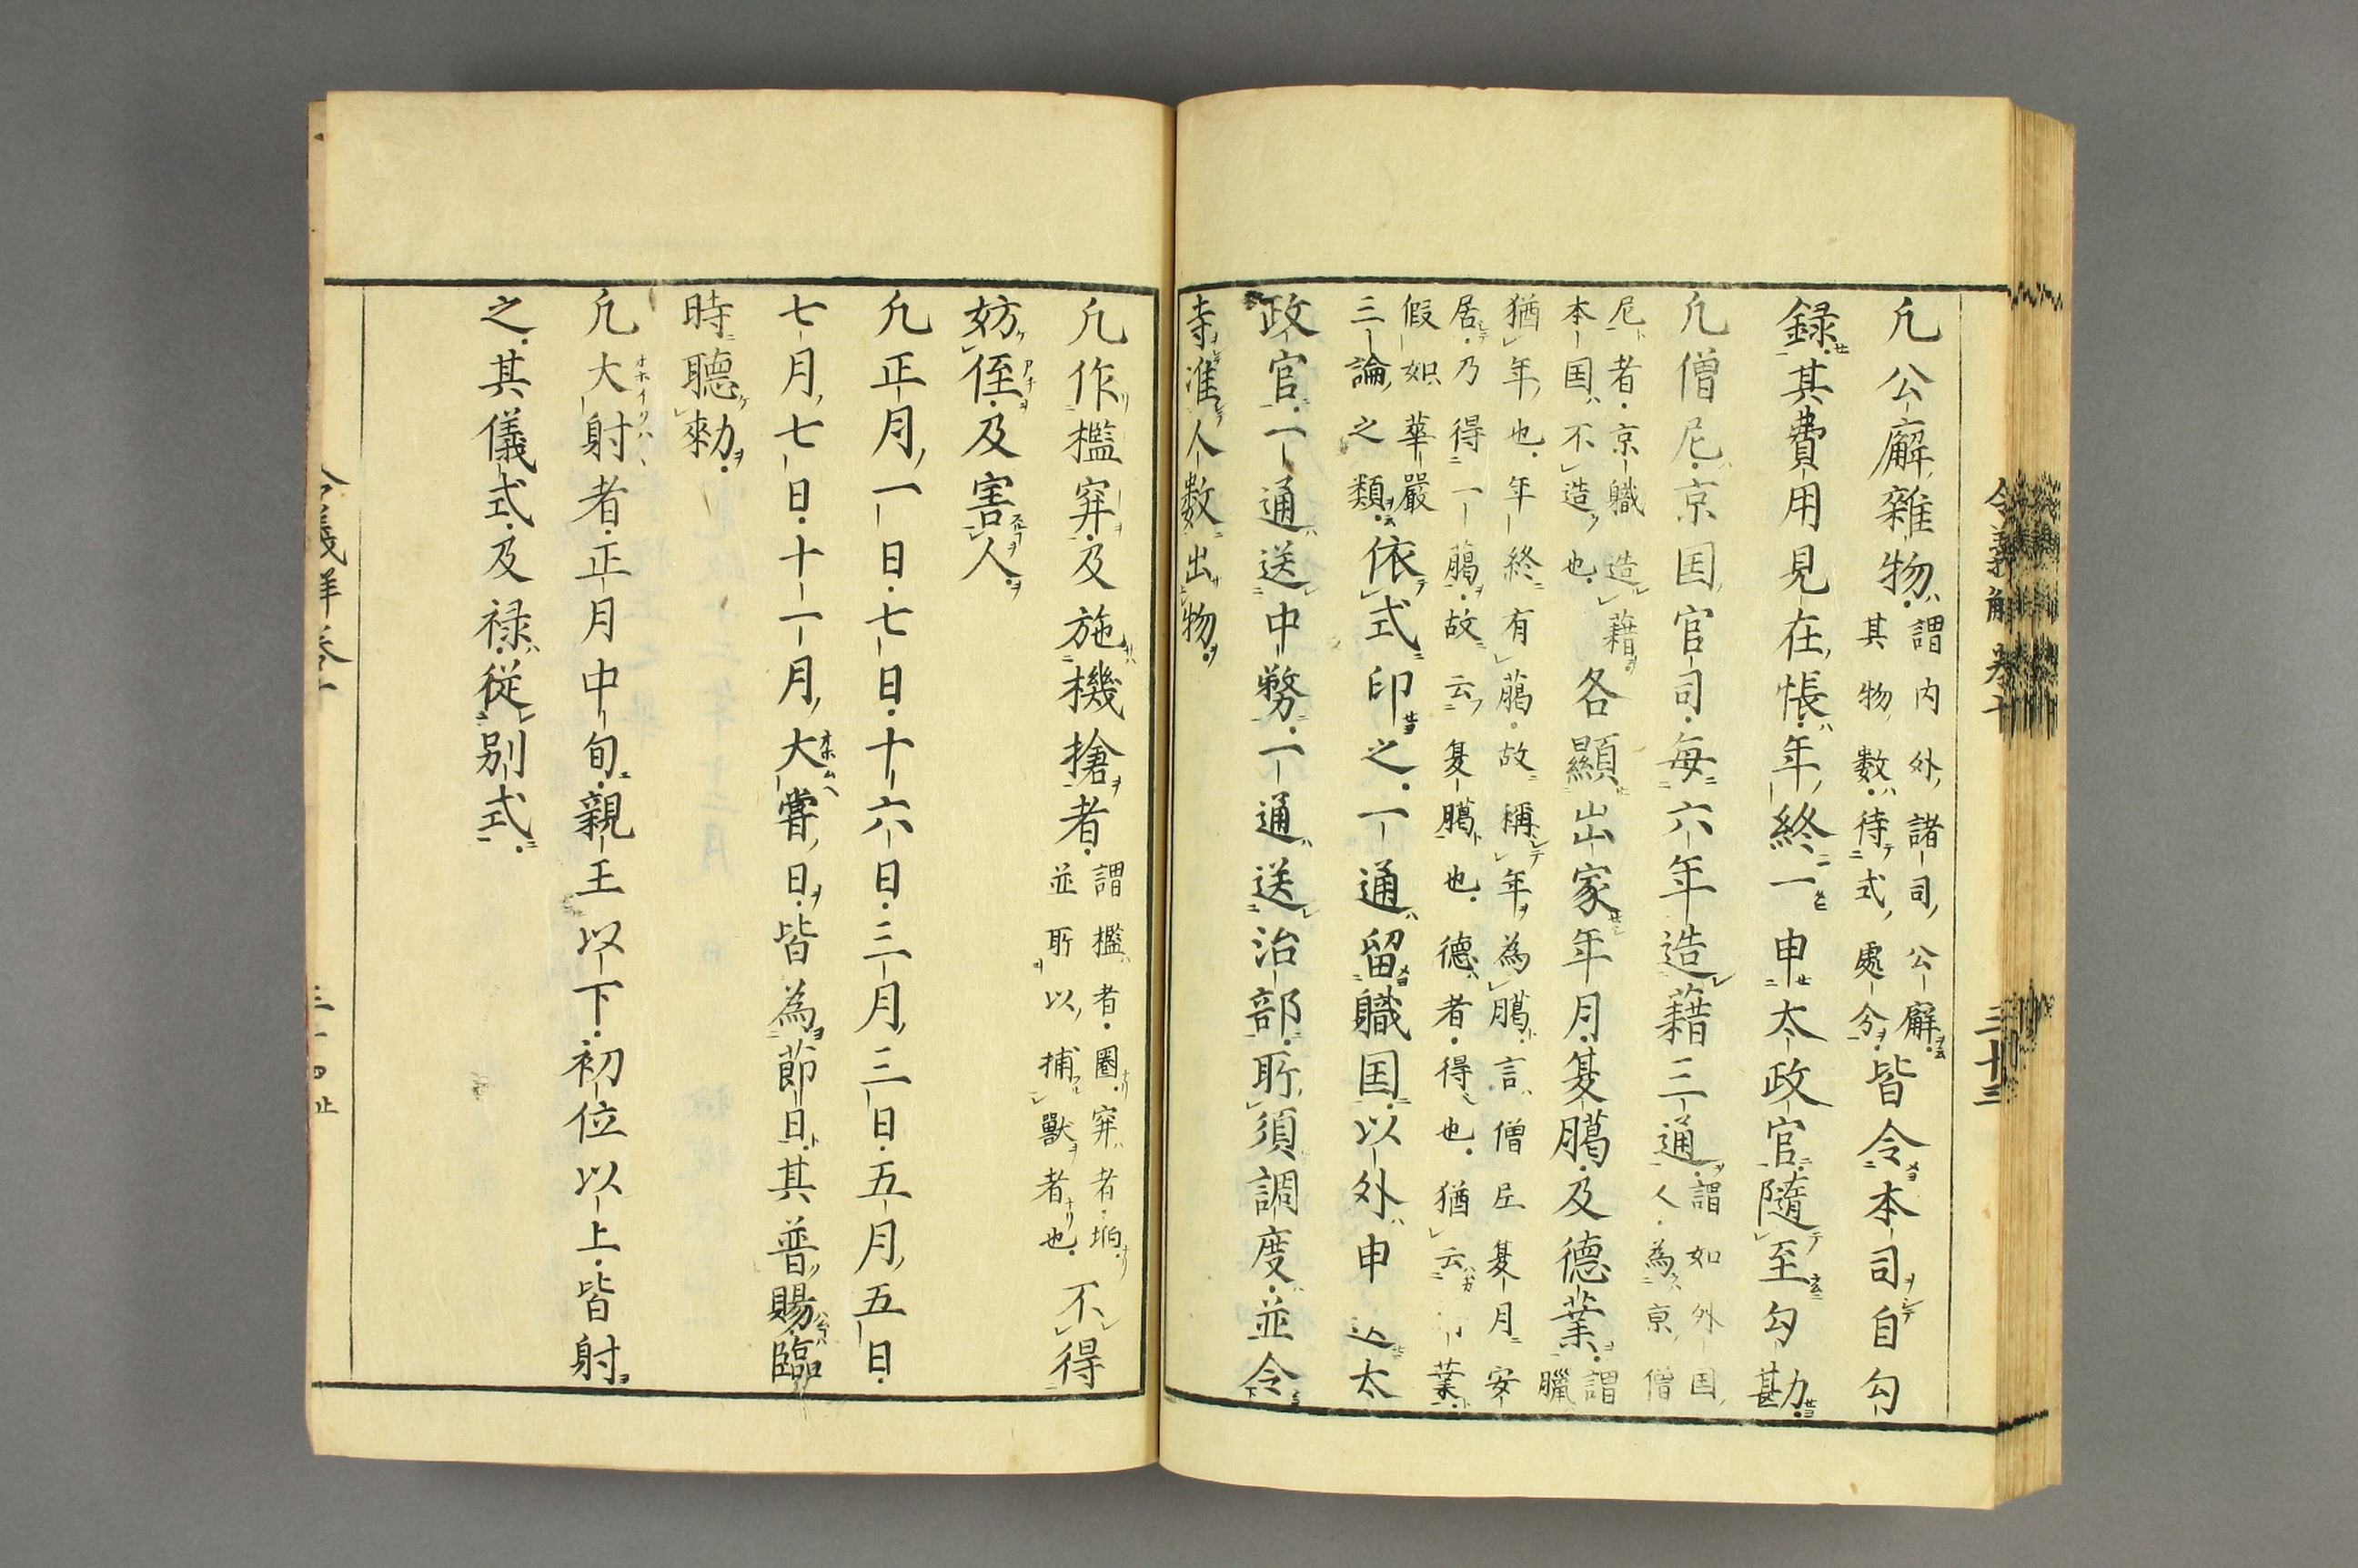 令義解卷十
三十三
凢公廨雜物謂内外諸司公廨
其物数待式處分皆令本司自勾
録其費用見在帳年終一申太政官隨至勾勘
凢僧尼京国官司每六年造藉三通謂如外国
人為京僧
尼者京職造藉
本国不造也各顯出家年月夏臈及德業謂
臘
猶年也年終有臈故稱年為臈言僧尼夏月安
居乃得一臈故云夏臈也德者得也猶云業
假如華嚴
三論之類依式印之一通留職国以外申送太
政官一通送中務一通送治部所須調度並令
寺准人数出物
凢作檻穽及施機搶者謂檻者圈穽者垍
並所以捕獸者也不得
妨侄及害人
凢正月一日七日十六日三月三日五月五日
七月七日十一月大嘗日皆為節日其普賜臨
時聽勑
凢大射者正月中旬親王以下初位以上皆射
之其儀式及禄從别式